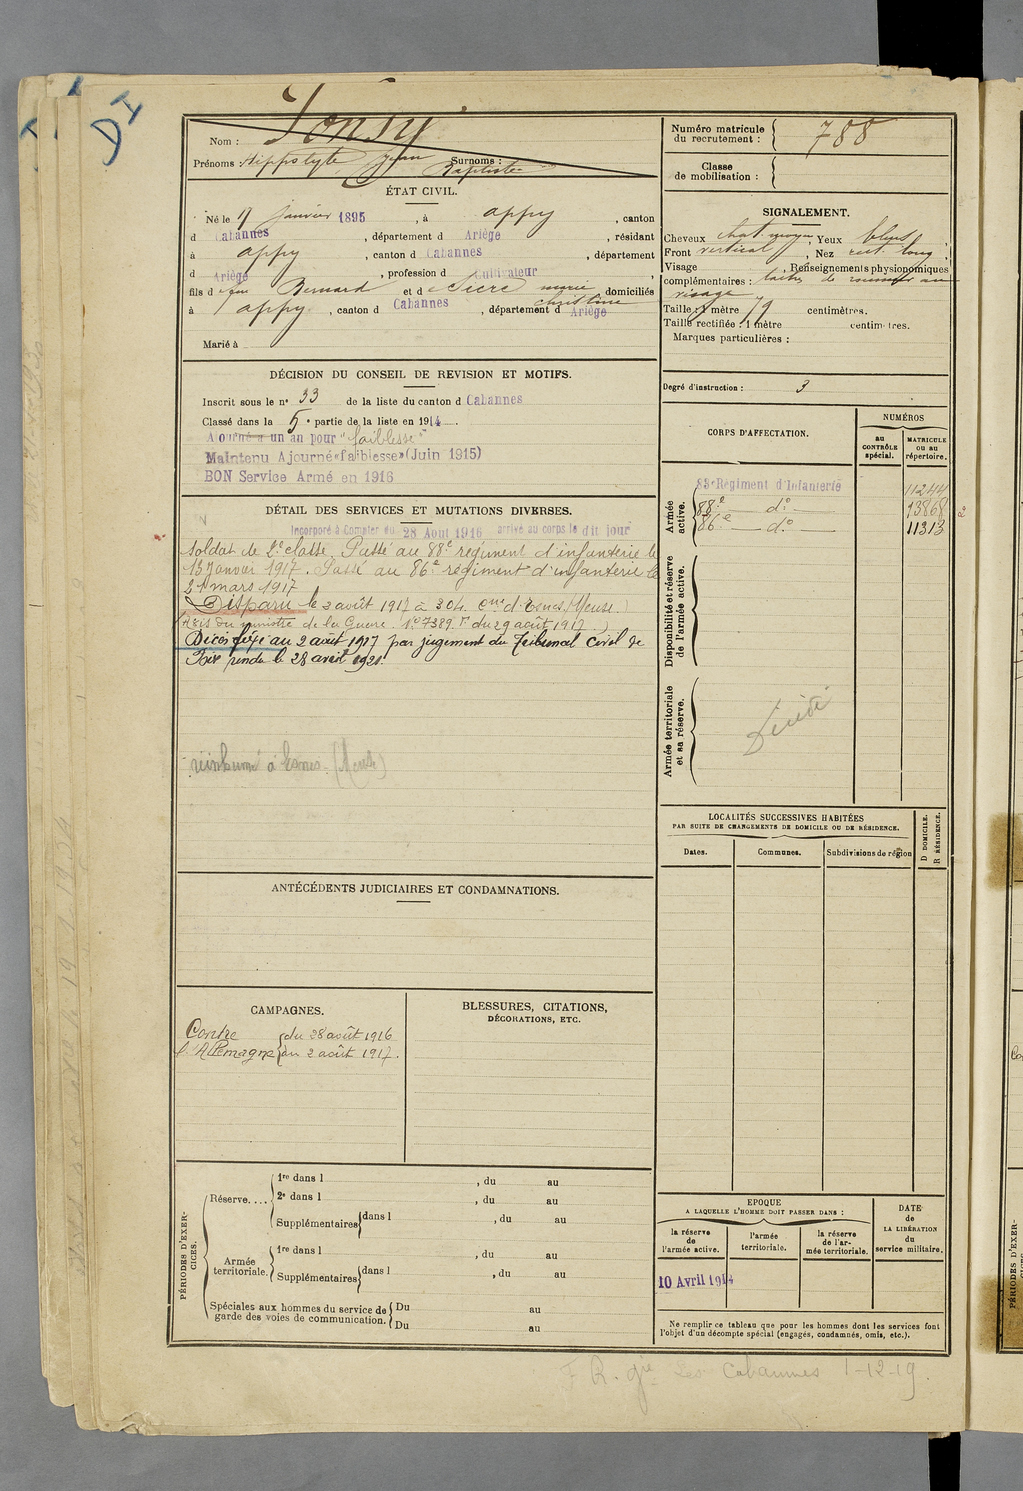 DI
Nom : Jonsy
Prénoms : Hippolyte Jean Surnoms : Baptiste
ÉTAT CIVIL.
Né le 9 Janvier 1895, à appy, canton
d Cabannes, département d Ariège, résidant
à appy, canton d Cabannes, département
d Ariège, profession d Cultivateur,
fils d Jean Bernard et d Sicre marie christine domiciliés
à appy, canton d Cabannes, département d Ariège
Marié à
DÉCISION DU CONSEIL DE REVISION ET MOTIFS.
Inscrit sous le n° 33 de la liste du canton d Cabannes
Classé dans la 5e partie de la liste en 1914.
Ajourné a un an pour "faiblesse"
Maintenu Ajourné «faiblesse» (Juin 1915)
BON Service Armé en 1916
DÉTAIL DES SERVICES ET MUTATIONS DIVERSES.
Incorporé à Compter du 28 Aout 1916 arrivé au corps le dit jour
soldat de 2e classe. Passé au 88e régiment d'infanterie le
13 Janvier 1917. Passé au 86e régiment d'infanterie le
21 mars 1917
Disparu le 2 août 1917 à 304. Cne d'Esnes (Meuse.)
(Avis du ministre de la Guerre. N° 7389. du 29 août 1917.)
Décès fixé au 2 août 1917 par jugement du Tribunal Civil de
Foix rendu le 28 avril 1921.
réinhumé à Esnes (Meuse)
ANTÉCÉDENTS JUDICIAIRES ET CONDAMNATIONS.
CAMPAGNES.
Contre l'Allemagne { du 28 août 1916
au 2 août 1917.
BLESSURES, CITATIONS,
DÉCORATIONS, ETC.
PÉRIODES D'EXERCICES.
Réserve....
1re dans l , du au
2e dans l , du au
Supplémentaires dans l , du au
Armée territoriale.
1re dans l , du au
Supplémentaires dans l , du au
Spéciales aux hommes du service de garde des voies de communication. Du au
Du au
Numéro matricule du recrutement : 788
Classe de mobilisation :
SIGNALEMENT.
Cheveux chat. moyen, Yeux bleus,
Front vertical, Nez rect. long,
Visage , Renseignements physionomiques
complémentaires : taches de rousseur au
visage
Taille : 1 mètre 79 centimètres.
Taille rectifiée : 1 mètre centimètres.
Marques particulières :
Degré d'instruction : 3
CORPS D'AFFECTATION.
NUMÉROS
au CONTRÔLE spécial.
MATRICULE ou au répertoire.
Armée active.
83e Régiment d'Infanterie 11244
88e d° 13868
86e d° 11313
Disponibilité et réserve de l'armée active.
Armée territoriale et sa réserve.
Décédé
LOCALITÉS SUCCESSIVES HABITÉES
PAR SUITE DE CHANGEMENTS DE DOMICILE OU DE RÉSIDENCE.
Dates.
Communes.
Subdivisions de région
D DOMICILE.
R RÉSIDENCE.
EPOQUE
A LAQUELLE L'HOMME DOIT PASSER DANS :
la réserve de l'armée active.
l'armée territoriale.
la réserve de l'armée territoriale.
DATE de LA LIBÉRATION du service militaire.
10 Avril 1914
Ne remplir ce tableau que pour les hommes dont les services font
l'objet d'un décompte spécial (engagés, condamnés, omis, etc.).
F R. gie Les Cabannes 1-12-19.
PÉRIODES D'EXER-
CICES.